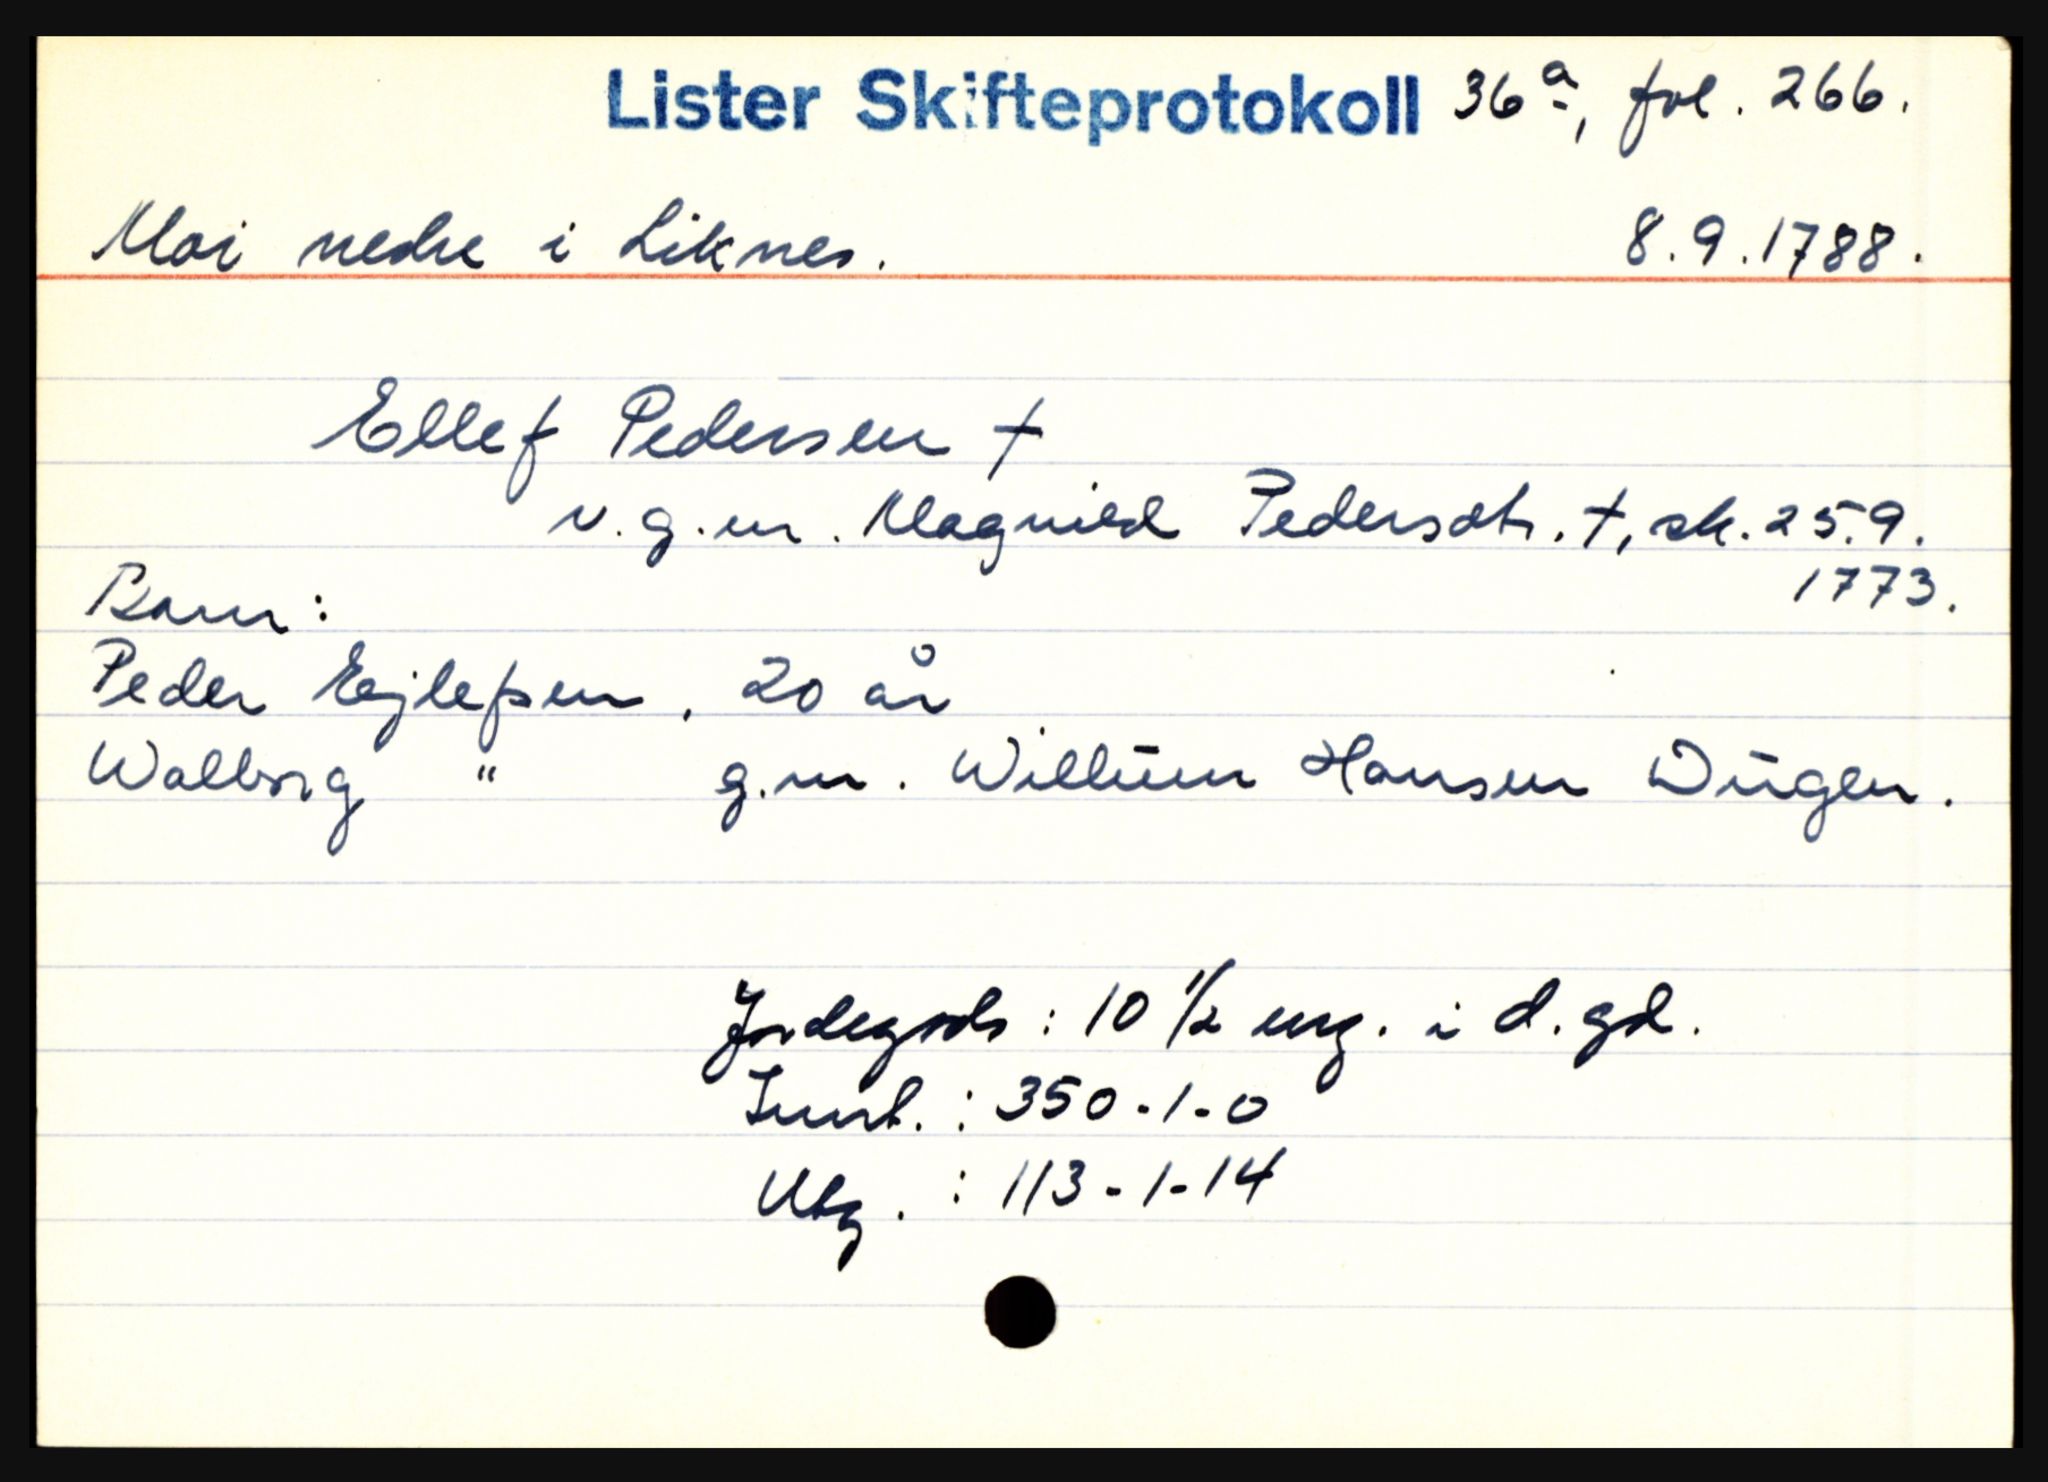 Lister Skifteprotokoll 36a, fol. 266.
Moi nedre i Liknes. 8.9.1788.
Ellef Pedersen †
v.g.m. Magnild Pedersdtr. †, sk. 25.9.
1773.
Barn:
Peder Eejlefsen, 20 år
Walborg " g.m. Willum Hansen Dugen.
Jordegods: 10 1/2 mrg. i d. gd.
Innt. : 350-1-0
Utg. : 113-1-14